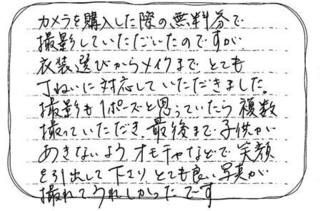 カメラを購入した際の無料券で
撮影していただいたのですが
衣装選びからメイクまで とても
丁ねいに対応していただきました。
撮影も1ポーズと思っていたら 複数
撮っていただき、最後まで子供が
あきないよう オモチャなどで 笑顔
を引出して下さり とても良い写真が
撮れてうれしかったです